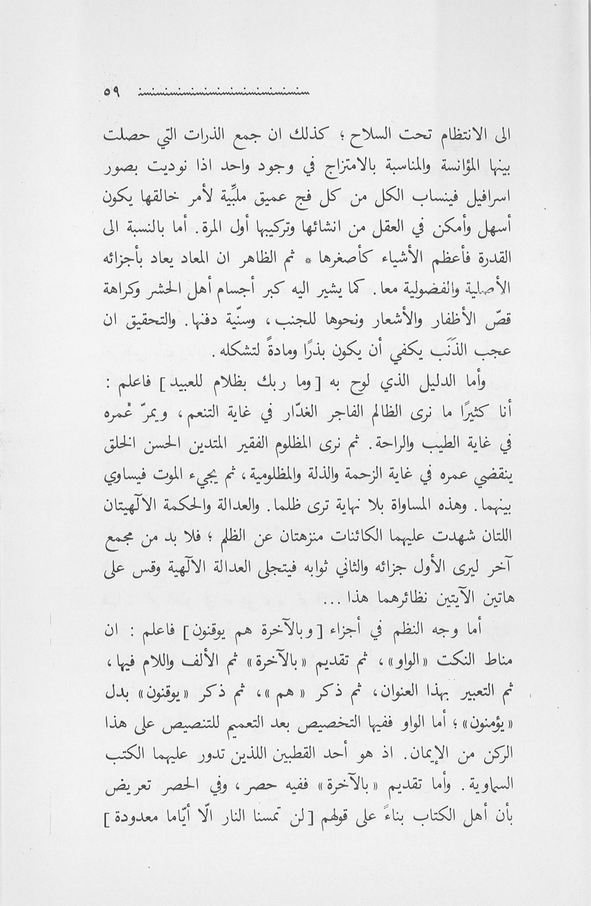 ٥٩
الى الانتظام تحت السلاح ؛ كذلك ان جمع الذرات التي حصلت
بينها المؤانسة والمناسبة بالامتزاج في وجود واحد اذا نوديت بصور
اسرافيل فينساب الكل من كل فج عميق ملبِّية لأمر خالقها يكون
أسهل وأمكن في العقل من انشائها وتركيبها أول المرة. أما بالنسبة الى
القدرة فأعظم الأشياء كأصغرها * ثم الظاهر ان المعاد يعاد بأجزائه
الأصلية والفضولية معا. كما يشير اليه كبر أجسام أهل الحشر وكراهة
قصّ الأظفار والأشعار ونحوها للجنب، وسنّية دفنها. والتحقيق ان
عجب الذَنَب يكفي أن يكون بذرًا ومادةً لتشكله.
وأما الدليل الذي لوح به [وما ربك بظلام للعبيد] فاعلم :
أنا كثيرًا ما نرى الظالم الفاجر الغدّار في غاية التنعم، ويمرّ عُمره
في غاية الطيب والراحة. ثم نرى المظلوم الفقير المتدين الحسن الخلق
ينقضي عمره في غاية الزحمة والذلة والمظلومية، ثم يجيء الموت فيساوي
بينهما. وهذه المساواة بلا نهاية ترى ظلما. والعدالة والحكمة الالٓهيتان
اللتان شهدت عليهما الكائنات منزهتان عن الظلم ؛ فلا بد من مجمع
آخر ليرى الأول جزائه والثاني ثوابه فيتجلى العدالة الالٓهية وقس على
هاتين الآيتين نظائرهما هذا ...
أما وجه النظم في أجزاء [وبالآخرة هم يوقنون] فاعلم : ان
مناط النكت «الواو»، ثم تقديم «بالآخرة» ثم الألف واللام فيها،
ثم التعبير بهذا العنوان، ثم ذكر «هم»، ثم ذكر «يوقنون» بدل
«يؤمنون» ؛ أما الواو ففيها التخصيص بعد التعميم للتنصيص على هذا
الركن من الإيمان. اذ هو أحد القطبين اللذين تدور عليهما الكتب
السماوية. وأما تقديم «بالآخرة» ففيه حصر، وفي الحصر تعريض
بأن أهل الكتاب بناءً على قولهم [لن تمسنا النار الّا أيّاما معدودة]